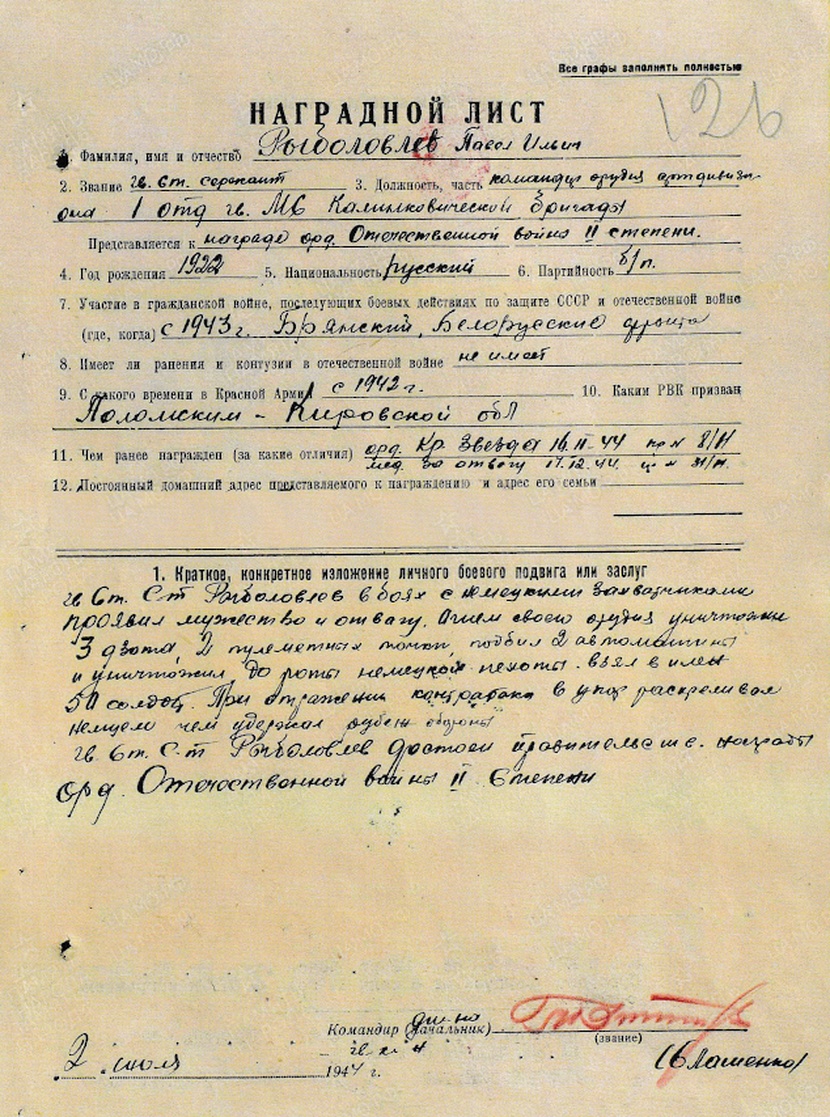 Все графы заполнять полностью
126
НАГРАДНОЙ ЛИСТ
1. Фамилия, имя и отчество Рыболовлев Павел Ильич
2. Звание гв. ст. сержант 3. Должность, часть командир орудия артдивизи-
она 1 отд гв. МС Калинковической бригады
Представляется к награде орд. Отечественной войны II степени.
4. Год рождения 1922 5. Национальность русский 6. Партийность б/п.
7. Участие в гражданской войне, последующих боевых действиях по защите СССР и отечественной войне
(где, когда) с 1943 г. Брянский, Белорусские фронта
8. Имеет ли ранения и контузии в отечественной войне не имеет
9. С какого времени в Красной Армии с 1942 г. 10. Каким РВК призван
Поломским - Кировской обл
11. Чем ранее награжден (за какие отличия) орд. Кр Звезда 16.II.44 пр № 8/Н
мед. За отвагу 17.12.44. № 31/Н.
12. Постоянный домашний адрес представляемого к награждению и адрес его семьи
1. Краткое, конкретное изложение личного боевого подвига или заслуг
гв Ст. С-т Рыболовлев в боях с немецкими захватчиками
проявил мужество и отвагу. Огнем своего орудия уничтожил
3 дзота, 2 пулеметных точки, подбил 2 автомашины
и уничтожил до роты немецкой пехоты. взял в плен
50 солдат. При отражении контратаки в упор расстреливал
немцев чем удержал рубеж обороны
гв. Ст. С-т Рыболовлев достоин правительств. награды
орд. Отечественной войны II Степени
Командир (начальник) див-на
(звание)
гв. к-н
2 июля 1944 г.
(Влашенко)